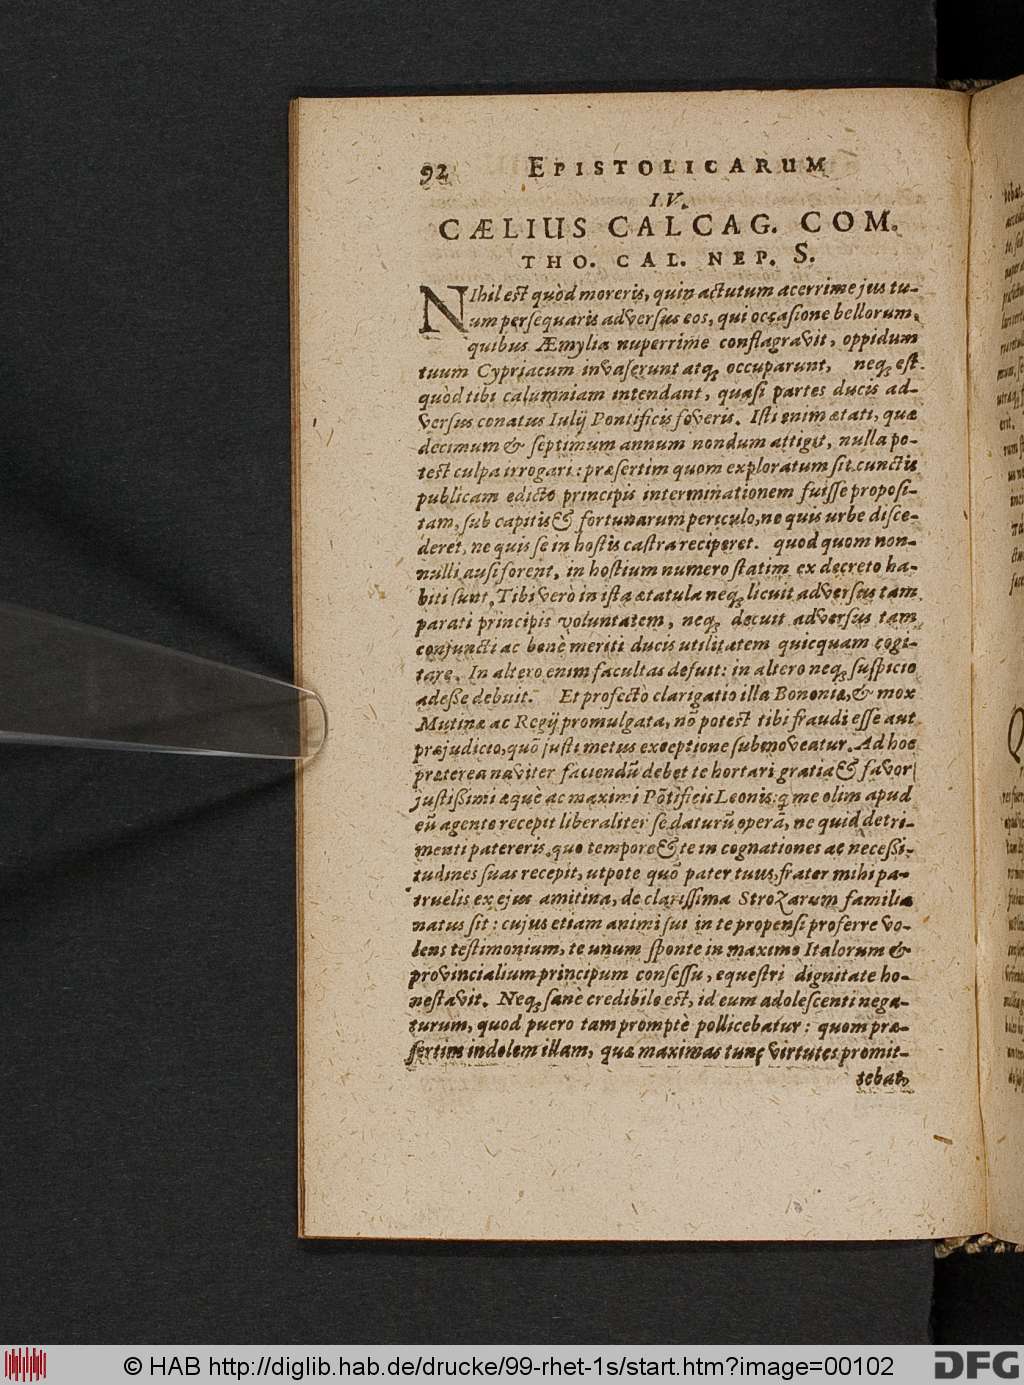 92 EPISTOLICARUM
IV.
CÆLIUS CALCAG. COM.
THO. CAL. NEP. S.
NIhil est quòd moreris, quin actutum acerrime jus tu-
um persequaris adversus eos, qui occasione bellorum,
quibus Æmylia nuperrime conflagravit, oppidum
tuum Cypriacum invaserunt atq; occuparunt, neq; est
quòd tibi calumniam intendant, quasi partes ducis ad-
versus conatus Iulij Pontificis foveris. Isti enim ætati, quæ
decimum & septimum annum nondum attigit, nulla po-
test culpa irrogari: præsertim quom exploratum sit cunctis
publicam edicto principis interminationem fuisse proposi-
tam, sub capitis & fortunarum periculo, ne quis urbe disce-
deret, ne quis se in hostis castra reciperet. quod quom non-
nulli ausi forent, in hostium numero statim ex decreto ha-
biti sunt. Tibi verò in ista ætatula neq; licuit adversus tam
parati principis voluntatem, neq; decuit adversus tam
conjuncti ac benè meriti ducis utilitatem quicquam cogi-
tare. In altero enim facultas defuit: in altero neq; suspicio
adesse debuit. Et profectò clarigatio illa Bononiæ, & mox
Mutinæ ac Regij promulgata, nõ potest tibi fraudi esse aut
præjudicio, quõ justi metus exceptione submoveatur. Ad hoc
præterea naviter faciendũ debet te hortari gratia & favor
justissimi æquè ac maximi Põtificis Leonis: q me olim apud
eũ agente recepit liberaliter se daturũ operã, ne quid detri-
menti patereris, quo tempore & te in cognationes ac necessi-
tudines suas recepit, utpote quõ pater tuus, frater mihi pa-
truelis ex ejus amitina, de clarissima Strozarum familia
natus sit: cujus etiam animi sui in te propensi proferre vo-
lens testimonium, te unum sponte in maximo Italorum &
provincialium principum consessu, equestri dignitate ho-
nestavit. Neq; sanè credibile est, id eum adolescenti nega-
turum, quod puero tam promptè pollicebatur: quom præ-
sertim indolem illam, quæ maximas tunc virtutes promit-
tebat,
© HAB http://diglib.hab.de/drucke/99-rhet-1s/start.htm?image=00102
DFG